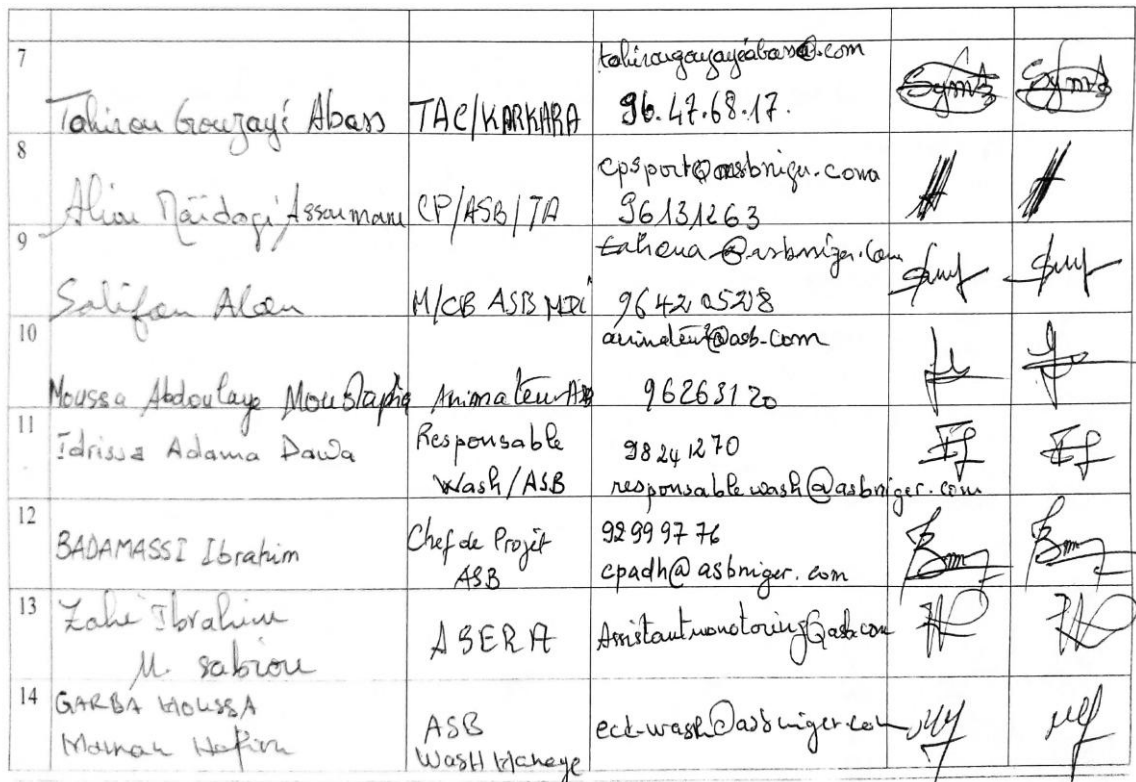 7
Tahirou Gouzayé Abass TAC/KARKARA tahirougouzayéabass@.com
96.47.68.17.
8
Aliou Maïdagi Assoumane CP/ASB/TA cpsport@asbniger.com
96131263
9
Salifou Alou M/CB ASB tahoua@asbniger.com
96420528
10
Moussa Abdoulaye Moustapha Animateur animateur@asb.com
96263120
11
Idrissa Adama Dawa Responsable
Wash/ASB
98241270
responsablewash@asbniger.com
12
BADAMASSI Ibrahim Chef de Projet
ASB
92999776
cpadh@asbniger.com
13
Zahé Ibrahim
M. Sabiou
ASERA Assistantmonotoring@asb.com
14
GARBA MOUSSA
Maman
ASB
WASH
ecd-wash@asbniger.com